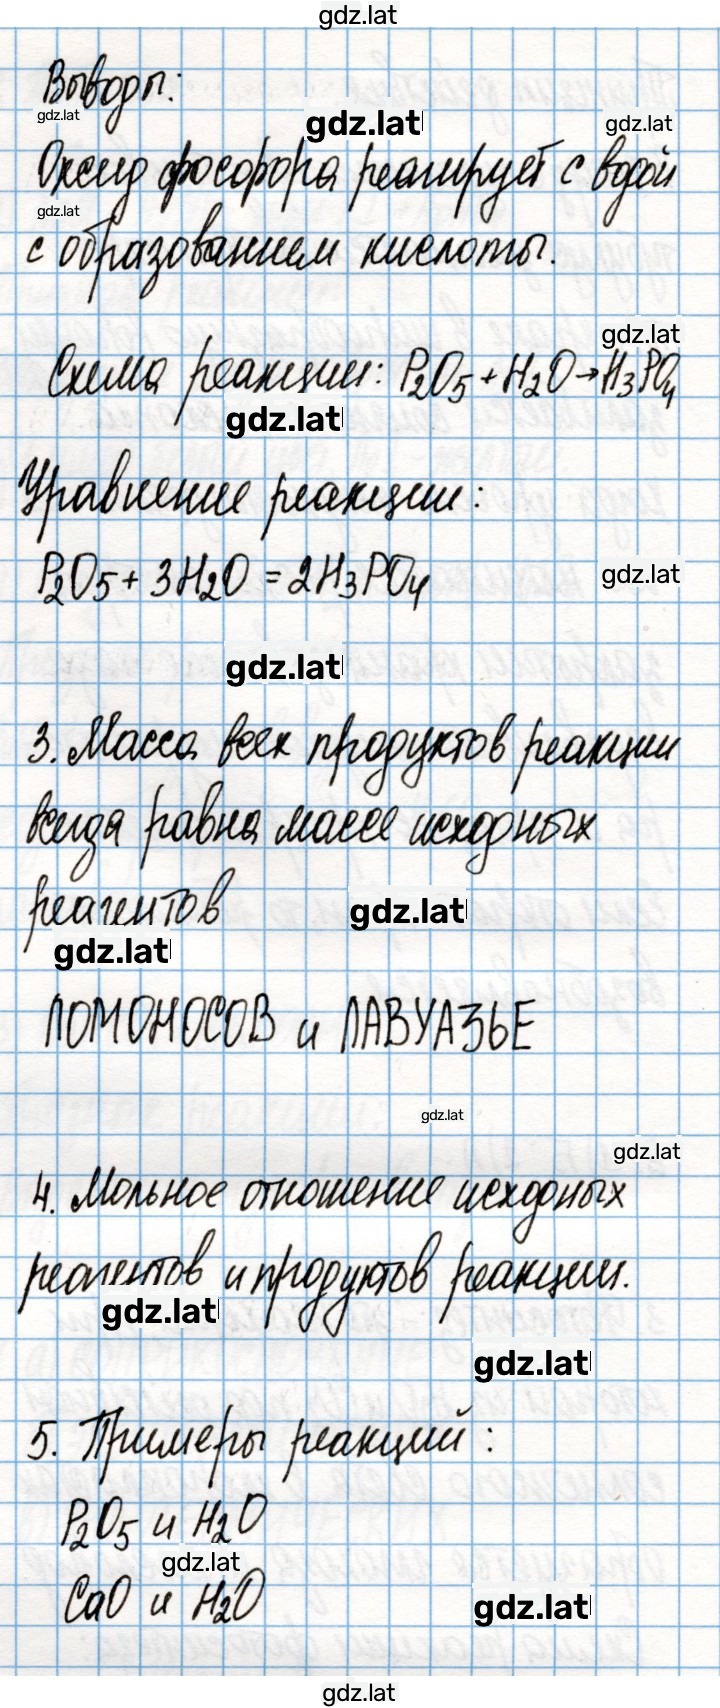 gdz.lat
Выводы:
gdz.lat
gdz.lat
gdz.lat
Оксид фосфора реагирует с водой
gdz.lat
с образованием кислоты.
gdz.lat
Схема реакции: P₂O₅ + H₂O → H₃PO₄
gdz.lat
Уравнение реакции:
P₂O₅ + 3H₂O = 2H₃PO₄
gdz.lat
gdz.lat
3. Масса всех продуктов реакции
всегда равна массе исходных
реагентов
gdz.lat
gdz.lat
ЛОМОНОСОВ и ЛАВУАЗЬЕ
gdz.lat
gdz.lat
4. Мольное отношение исходных
реагентов и продуктов реакции.
gdz.lat
gdz.lat
5. Примеры реакций:
P₂O₅ и H₂O
gdz.lat
CaO и H₂O
gdz.lat
gdz.lat